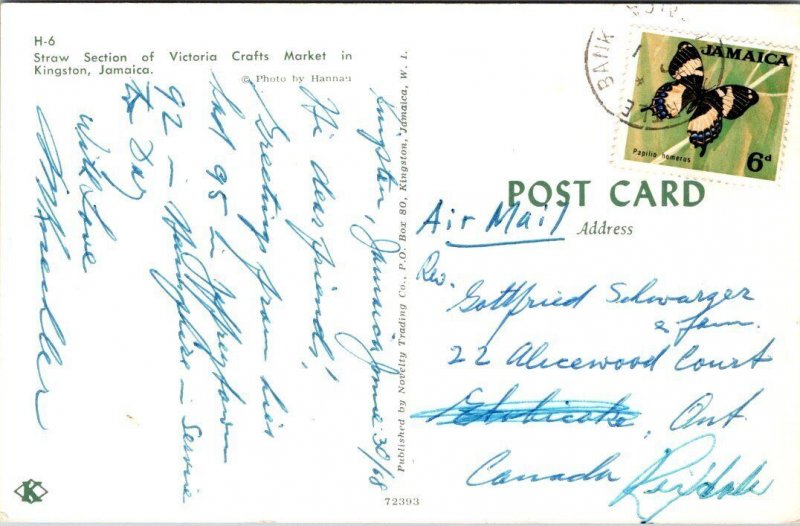 H-6
Straw Section of Victoria Crafts Market in
Kingston, Jamaica.
© Photo by Hannau
Kingston, Jamaica June 30/68
Hi dear friends!
Greetings from
last 95 in Jeffreytown
92 in Hampshire in Service
to Day
With Love
Published by Novelty Trading Co., P.O. Box 80, Kingston, Jamaica, W. I.
K
72393
BANK
JAMAICA
Papilio homerus
6d
POST CARD
Address
Air Mail
Rev. Gottfried Schwarzer
& fam.
22 Alicewood Court
Etobicoke, Ont
Canada Rexdale